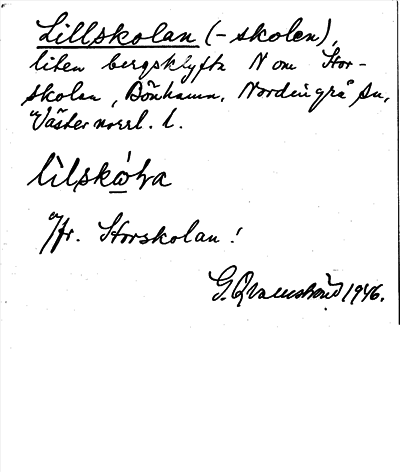 Lillskolan (-skolen),
liten bergsklyfta N om Stor-
skolan, Bönhamn, Nordingrå sn,
Västernorrl. l.
lìlskὼɫa
Jfr. Storskolan!
G. Qvarnström 1946.